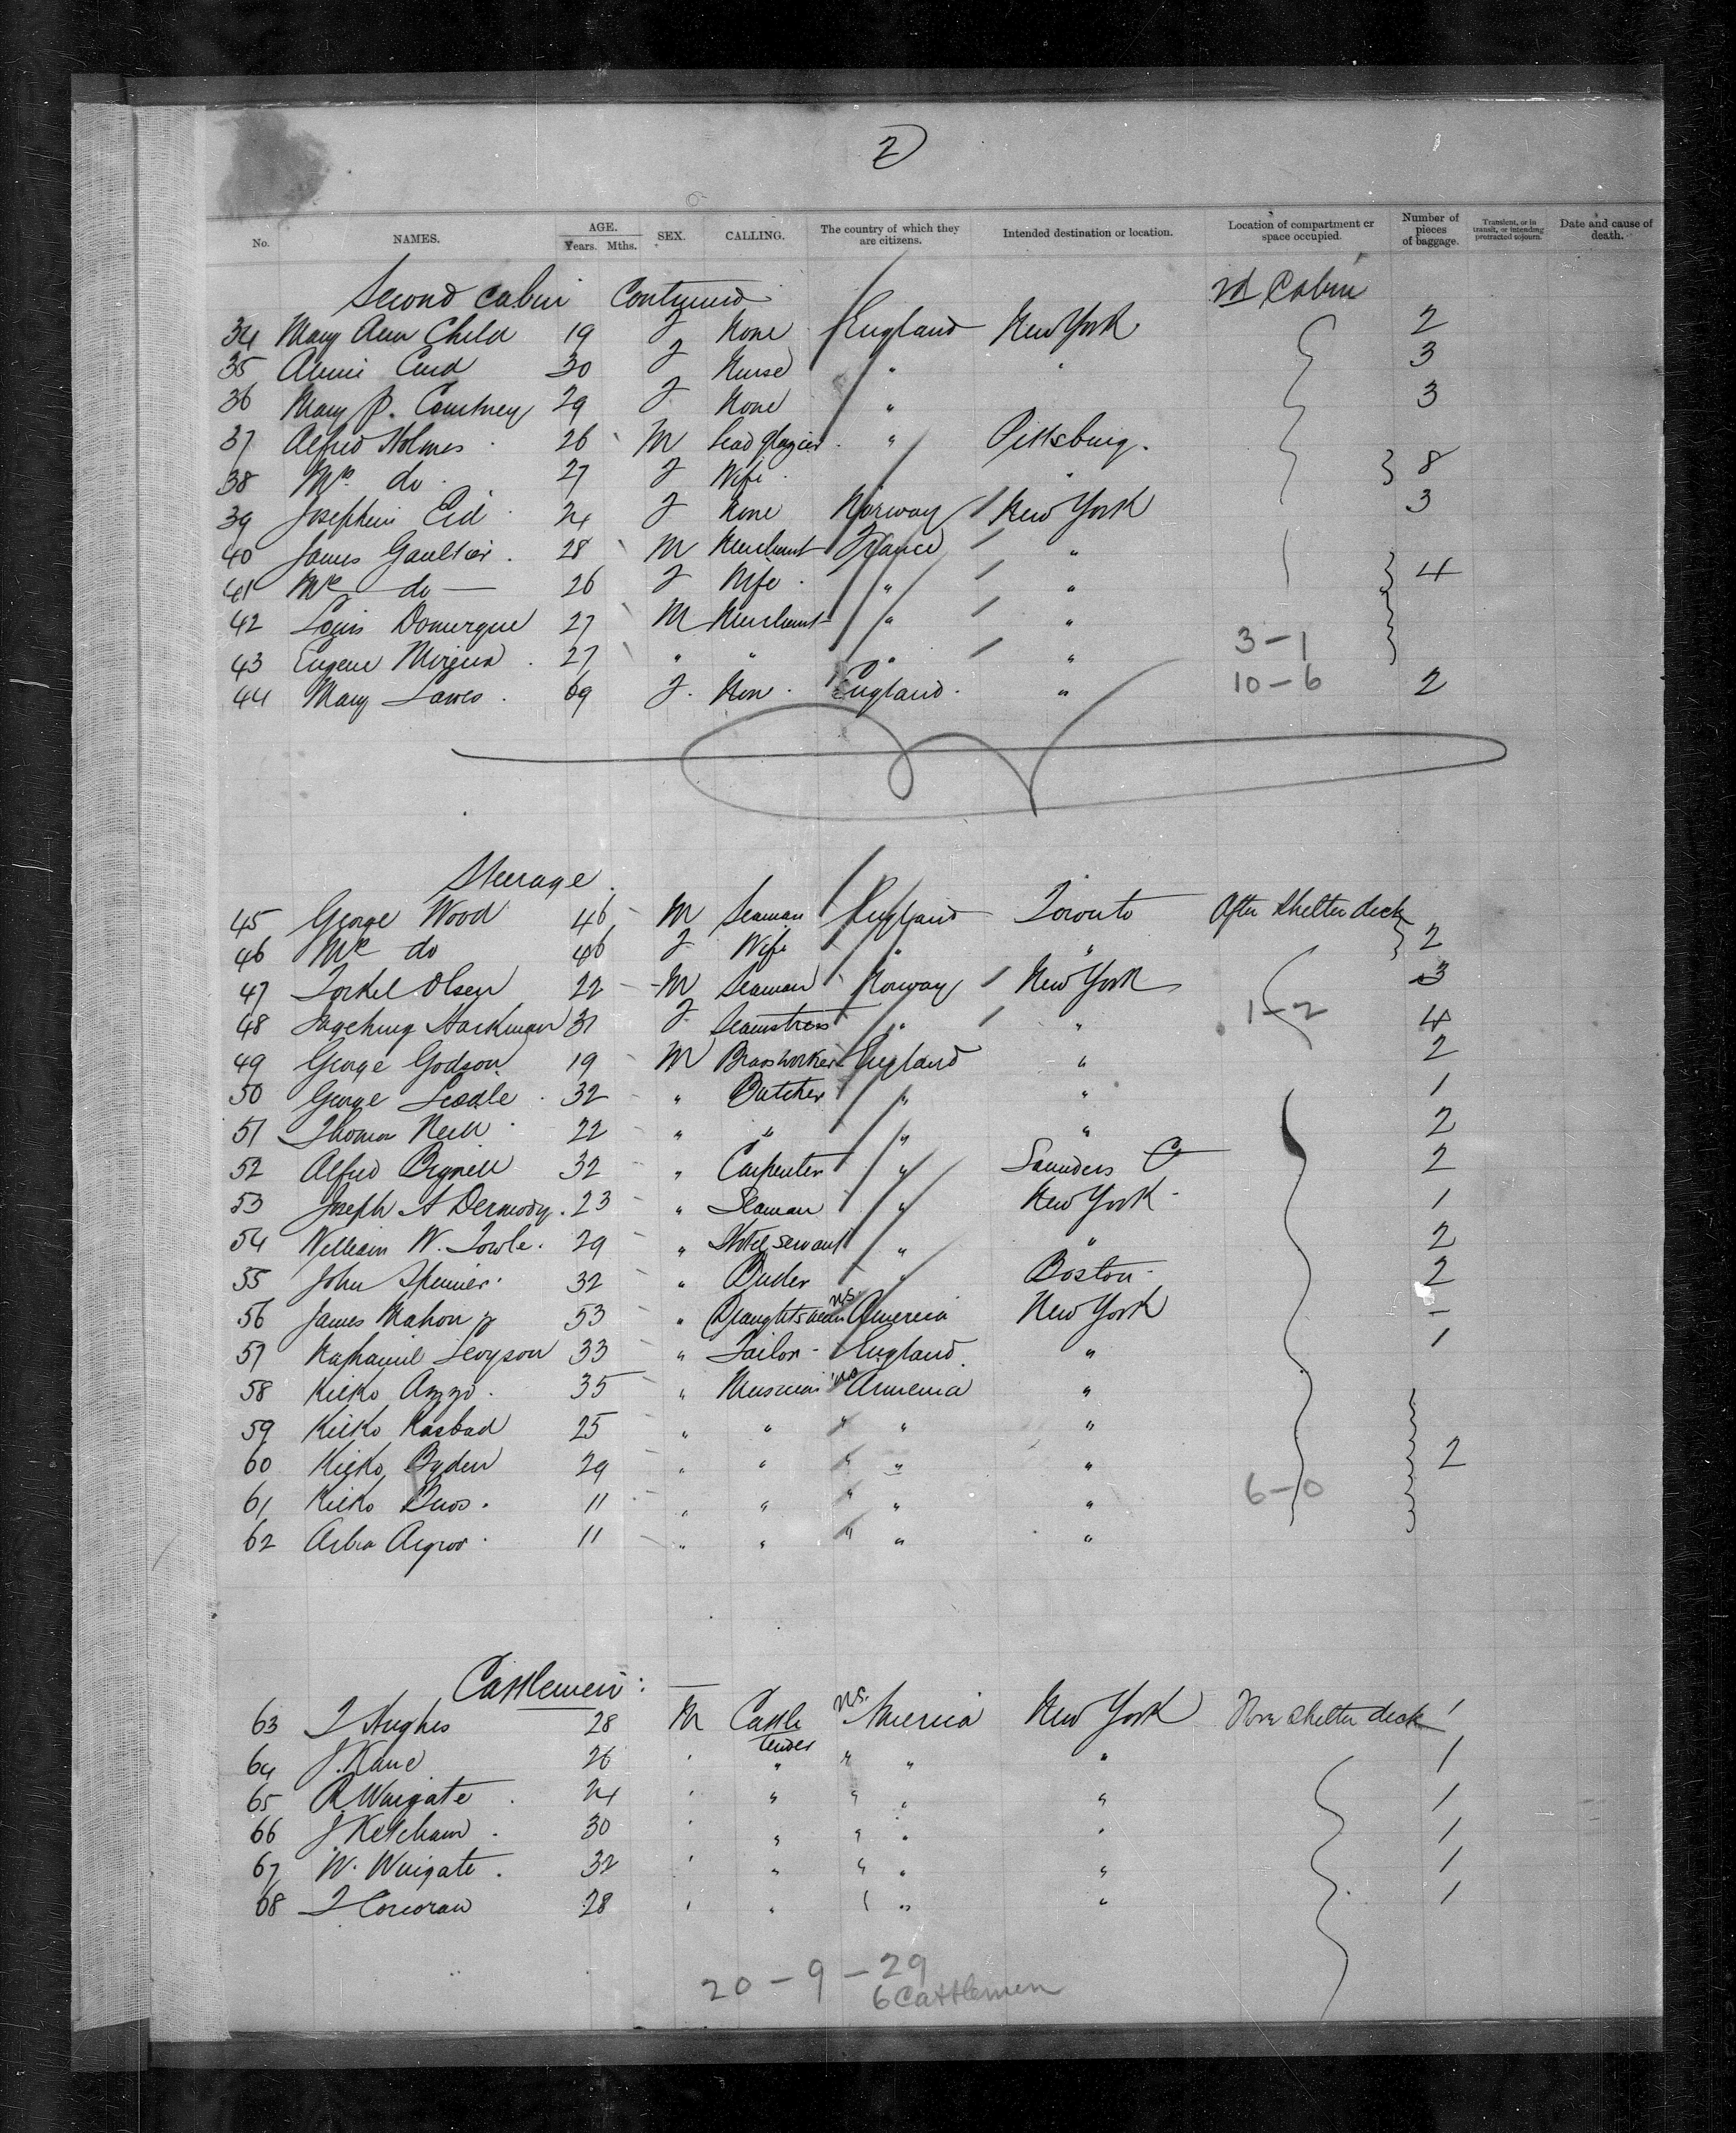 2
No. NAMES. AGE. Years. Mths. SEX. CALLING. The country of which they are citizens. Intended destination or location. Location of compartment or space occupied. Number of pieces of baggage. Transient, or in transit, or intending protracted sojourn. Date and cause of death.
Second Cabin Continued 2d Cabin
34 Mary Ann Child 19 F None England New York 2
35 Annie 30 F Nurse " " 3
36 Mary P. Courtney 29 F None " 3
37 Alfred Holmes 26 M Lead glazier " Pittsburg.
38 Mrs do 27 F Wife " 8
39 Josephine Eid 24 F None Norway New York 3
40 James Gaultier 28 M Merchant France "
41 Mrs do 26 F Wife " " 4
42 Louis Domergue 27 M Merchant " "
43 Eugene 27 " " " " 3-1
44 Mary Lawes 69 F. Non England " 10-6 2
Steerage
45 George Wood 46 M Seaman England Toronto After Shelter deck
46 Mrs do 46 F Wife " " 2
47 Torkel Olsen 22 M Seaman Norway New York 3
48 31 F Seamstress " " 1-2 4
49 George Godson 19 M Brassworker England " 2
50 George 32 " Butcher " " 1
51 Thomas Neill 22 " " " " 2
52 Alfred Bignell 32 " Carpenter " Saunders 2
53 Joseph A Dermody 23 " Seaman " New York 1
54 William W. Towle 29 " Hotel servant " " 2
55 John 32 " " Boston 2
56 James Mahony 53 " Draughtsman U.S. America New York -
57 Nathaniel Levyson 33 " Tailor England " 1
58 Kieko Azzo 35 " Musician Armenia "
59 Kieko Kasbad 25 " " " " "
60 Kieko 29 " " " " " 2
61 Kieko 11 " " " " " 6-0
62 11 " " " " "
Cattlemen:
63 T Hughes 28 M Cattle tender U.S. America New York Fore Shelter deck 1
64 J. Kane 26 " " " " " 1
65 R Wingate 24 " " " " " 1
66 J Ketcham 30 " " " " " 1
67 W. Wingate 32 " " " " " 1
68 T Corcoran 28 " " " " " 1
20-9-29
6 Cattlemen